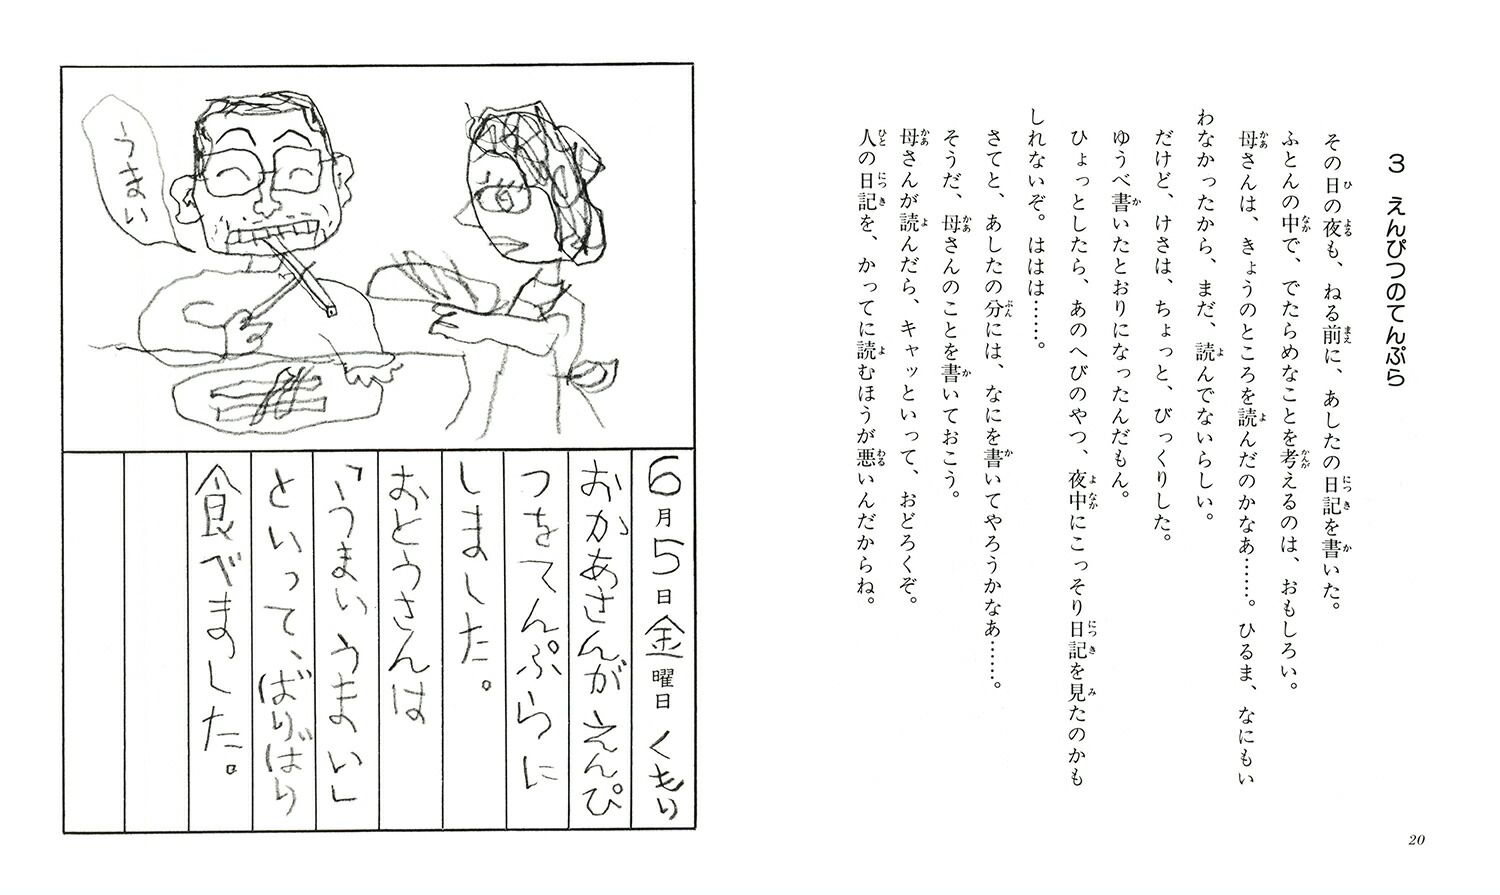 3 えんぴつのてんぷら
その日の夜も、ねる前に、あしたの日記を書いた。
ふとんの中で、でたらめなことを考えるのは、おもしろい。
母さんは、きょうのところを読んだのかなあ……。ひるま、なにもい
わなかったから、まだ、読んでないらしい。
だけど、けさは、ちょっと、びっくりした。
ゆうべ書いたとおりになったんだもん。
ひょっとしたら、あのへびのやつ、夜中にこっそり日記を見たのかも
しれないぞ。ははは……。
さてと、あしたの分には、なにを書いてやろうかなあ……。
そうだ、母さんのことを書いておこう。
母さんが読んだら、キャッといって、おどろくぞ。
人の日記を、かってに読むほうが悪いんだからね。
20
うまい
6月5日金曜日くもり
おかあさんがえんぴ
つをてんぷらに
しました。
おとうさんは
「うまいうまい」
といって、ばりばり
食べました。